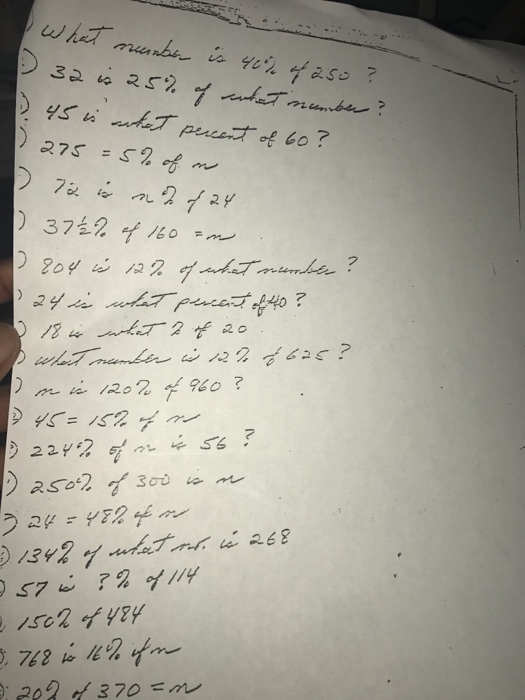 ) What number is 40% of 250 ?
) 32 is 25% of what number ?
) 45 is what percent of 60 ?
) 275 = 5% of n
) 72 is n % of 24
) 37½% of 160 = n
) 804 is 12% of what number ?
) 24 is what percent of 40 ?
) 18 is what % of 20
) What number is 12% of 625 ?
) n is 120% of 960 ?
) 45 = 15% of n
) 224% of n is 56 ?
) 250% of 300 is n
) 24 = 48% of n
) 134% of what nr. is 268
) 57 is ? % of 114
150% of 484
768 is 16% of n
20% of 370 = n